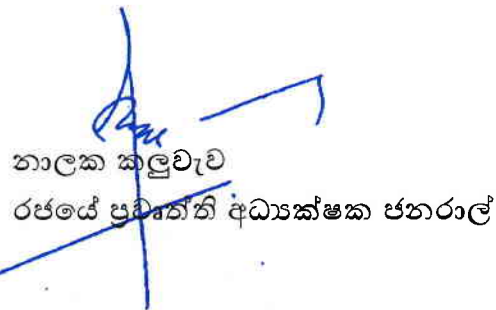 නාලක කලුවැව
රජයේ ප්‍රවෘත්ති අධ්‍යක්ෂක ජනරාල්